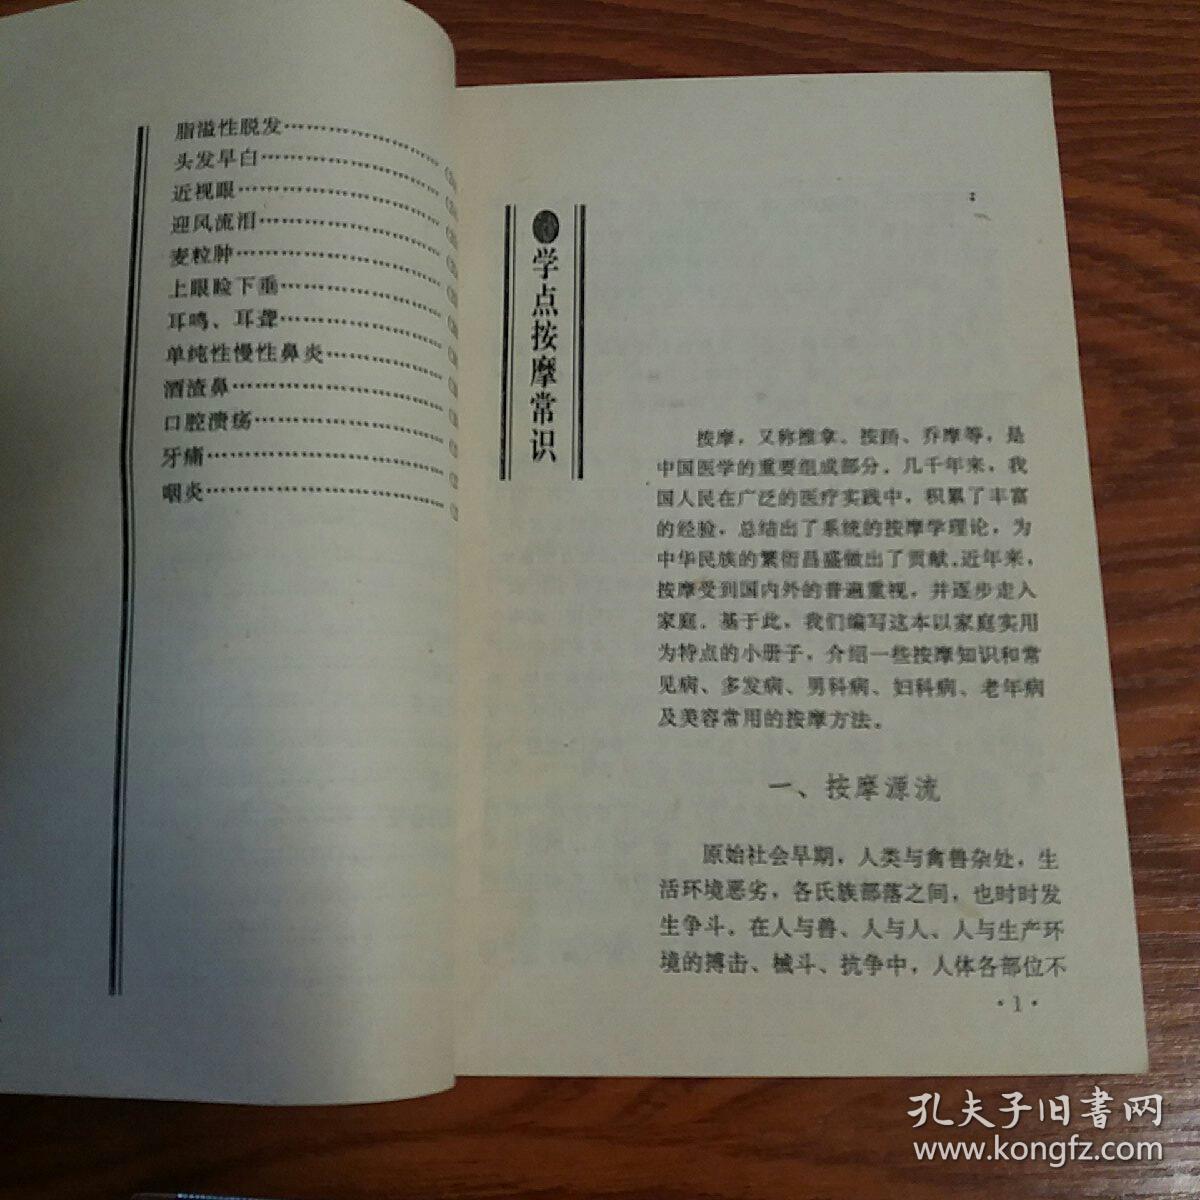 脂溢性脱发
头发早白
近视眼
迎风流泪
麦粒肿
上眼睑下垂
耳鸣、耳聋
单纯性慢性鼻炎
酒渣鼻
口腔溃疡
牙痛
咽炎
学点按摩常识
按摩，又称推拿、按跷、乔摩等，是
中国医学的重要组成部分。几千年来，我
国人民在广泛的医疗实践中，积累了丰富
的经验，总结出了系统的按摩学理论，为
中华民族的繁衍昌盛做出了贡献。近年来，
按摩受到国内外的普遍重视，并逐步走入
家庭。基于此，我们编写这本以家庭实用
为特点的小册子，介绍一些按摩知识和常
见病、多发病、男科病、妇科病、老年病
及美容常用的按摩方法。
一、按摩源流
原始社会早期，人类与禽兽杂处，生
活环境恶劣，各氏族部落之间，也时时发
生争斗。在人与兽、人与人、人与生产环
境的搏击、械斗、抗争中，人体各部位不
·1·
孔夫子旧书网
www.kongfz.com